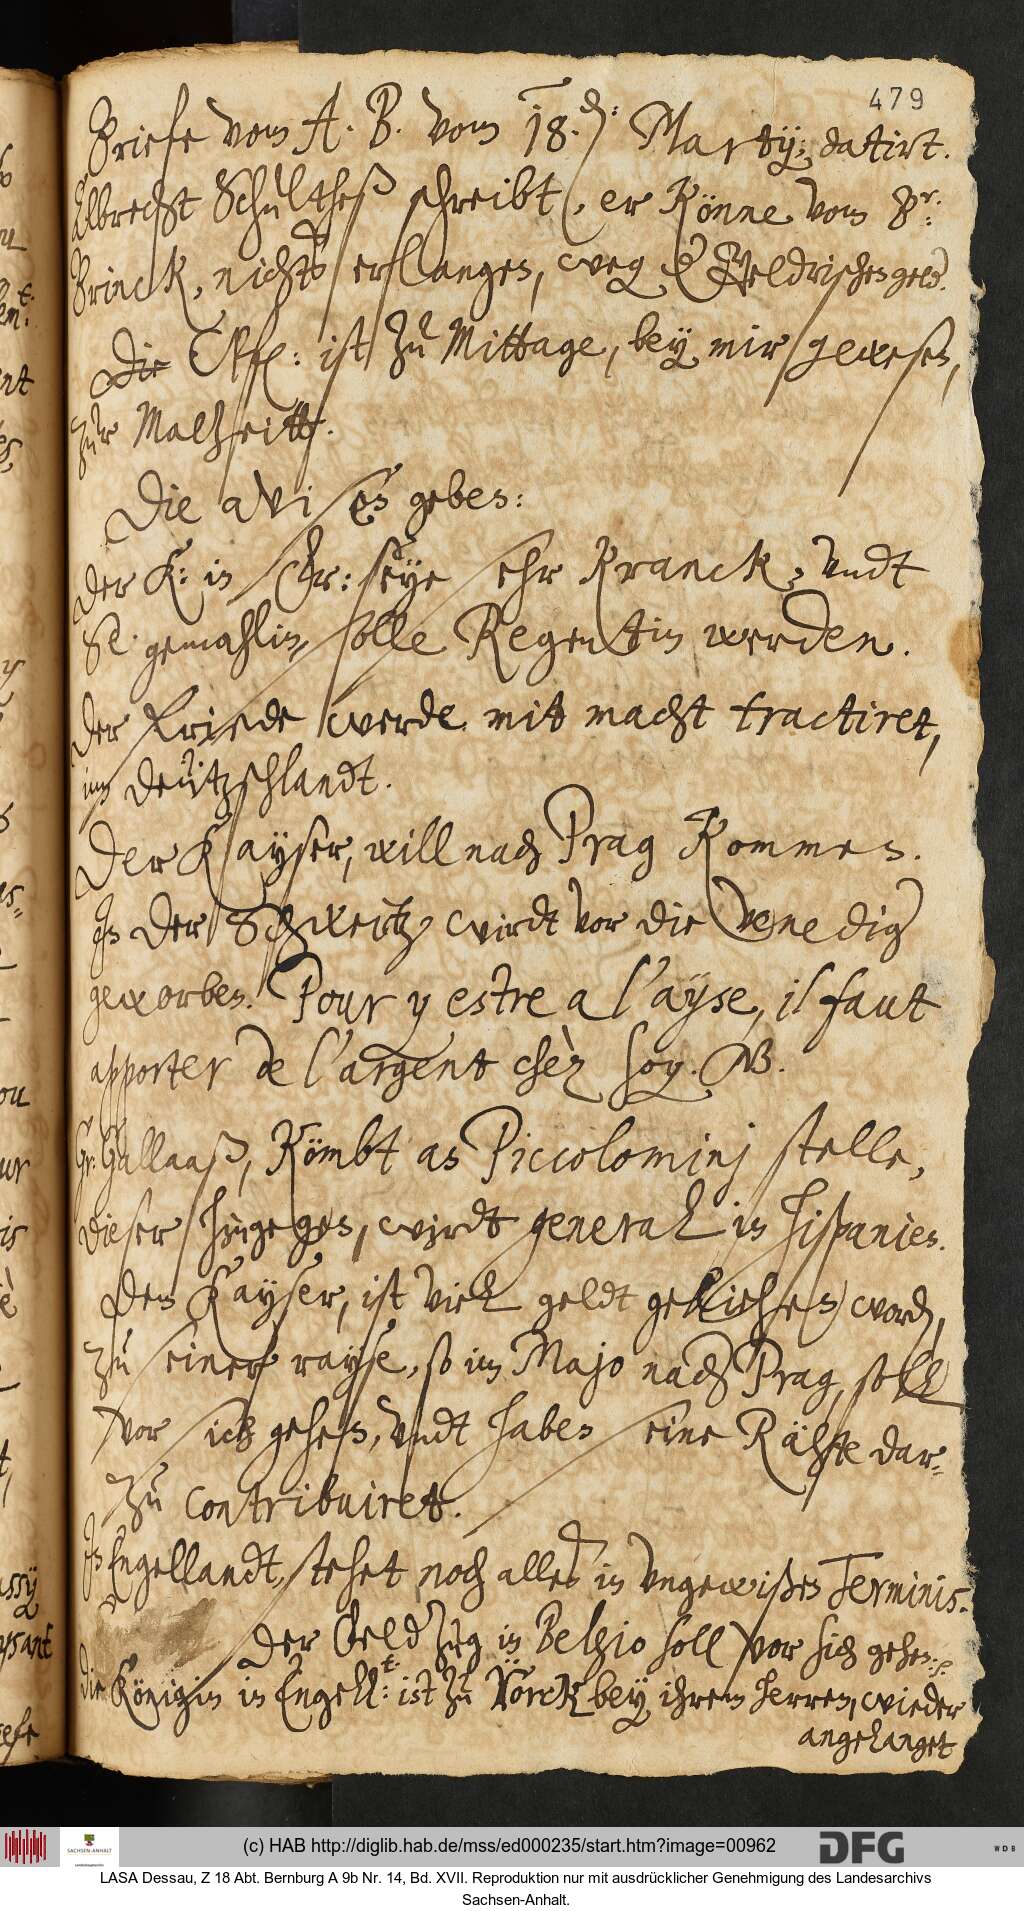 479
Briefe vom A. B. vom 18. Martij: datirt.
Albrecht Schultheß schreibt, er könne vom Br:
Brinck, nichts erlangen, weg Geldrisches geld.
Die ist zu Mittage, bey mir gewesen,
zur Malzeitt.
Die avisen geben:
Der K: in Fr: seye sehr kranck, undt
Se: gemahlin, solle Regentin werden.
Der Friede werde mit macht tractiret,
im deützschlandt.
Der Kayser, will nach Prag kommen.
In der Schweitz wirdt vor die Venedig
geworben. Pour y estre a l'ayse, il faut
apporter de l'argent chèz soy. NB.
Gr: Gallaaß, kömbt an Piccolominj stelle,
dieser hingegen, wirdt general in Hispanien.
Dem Kayser, ist viel geldt geliehen word,
zu einer rayse, so im Majo nach Prag, soll
vor sich gehen, undt haben seine Rähte dar-
zu contribuiret.
In Engellandt, stehet noch alles in ungewißen Terminis.
Der Feldzug in Belgio soll vor sich gehen.
Die Königin in Engell:t ist zu Yorck bey ihrem herren, wieder
angelanget
(c) HAB http://diglib.hab.de/mss/ed000235/start.htm?image=00962
SACHSEN-ANHALT
DFG
WDB
LASA Dessau, Z 18 Abt. Bernburg A 9b Nr. 14, Bd. XVII. Reproduktion nur mit ausdrücklicher Genehmigung des Landesarchivs
Sachsen-Anhalt.